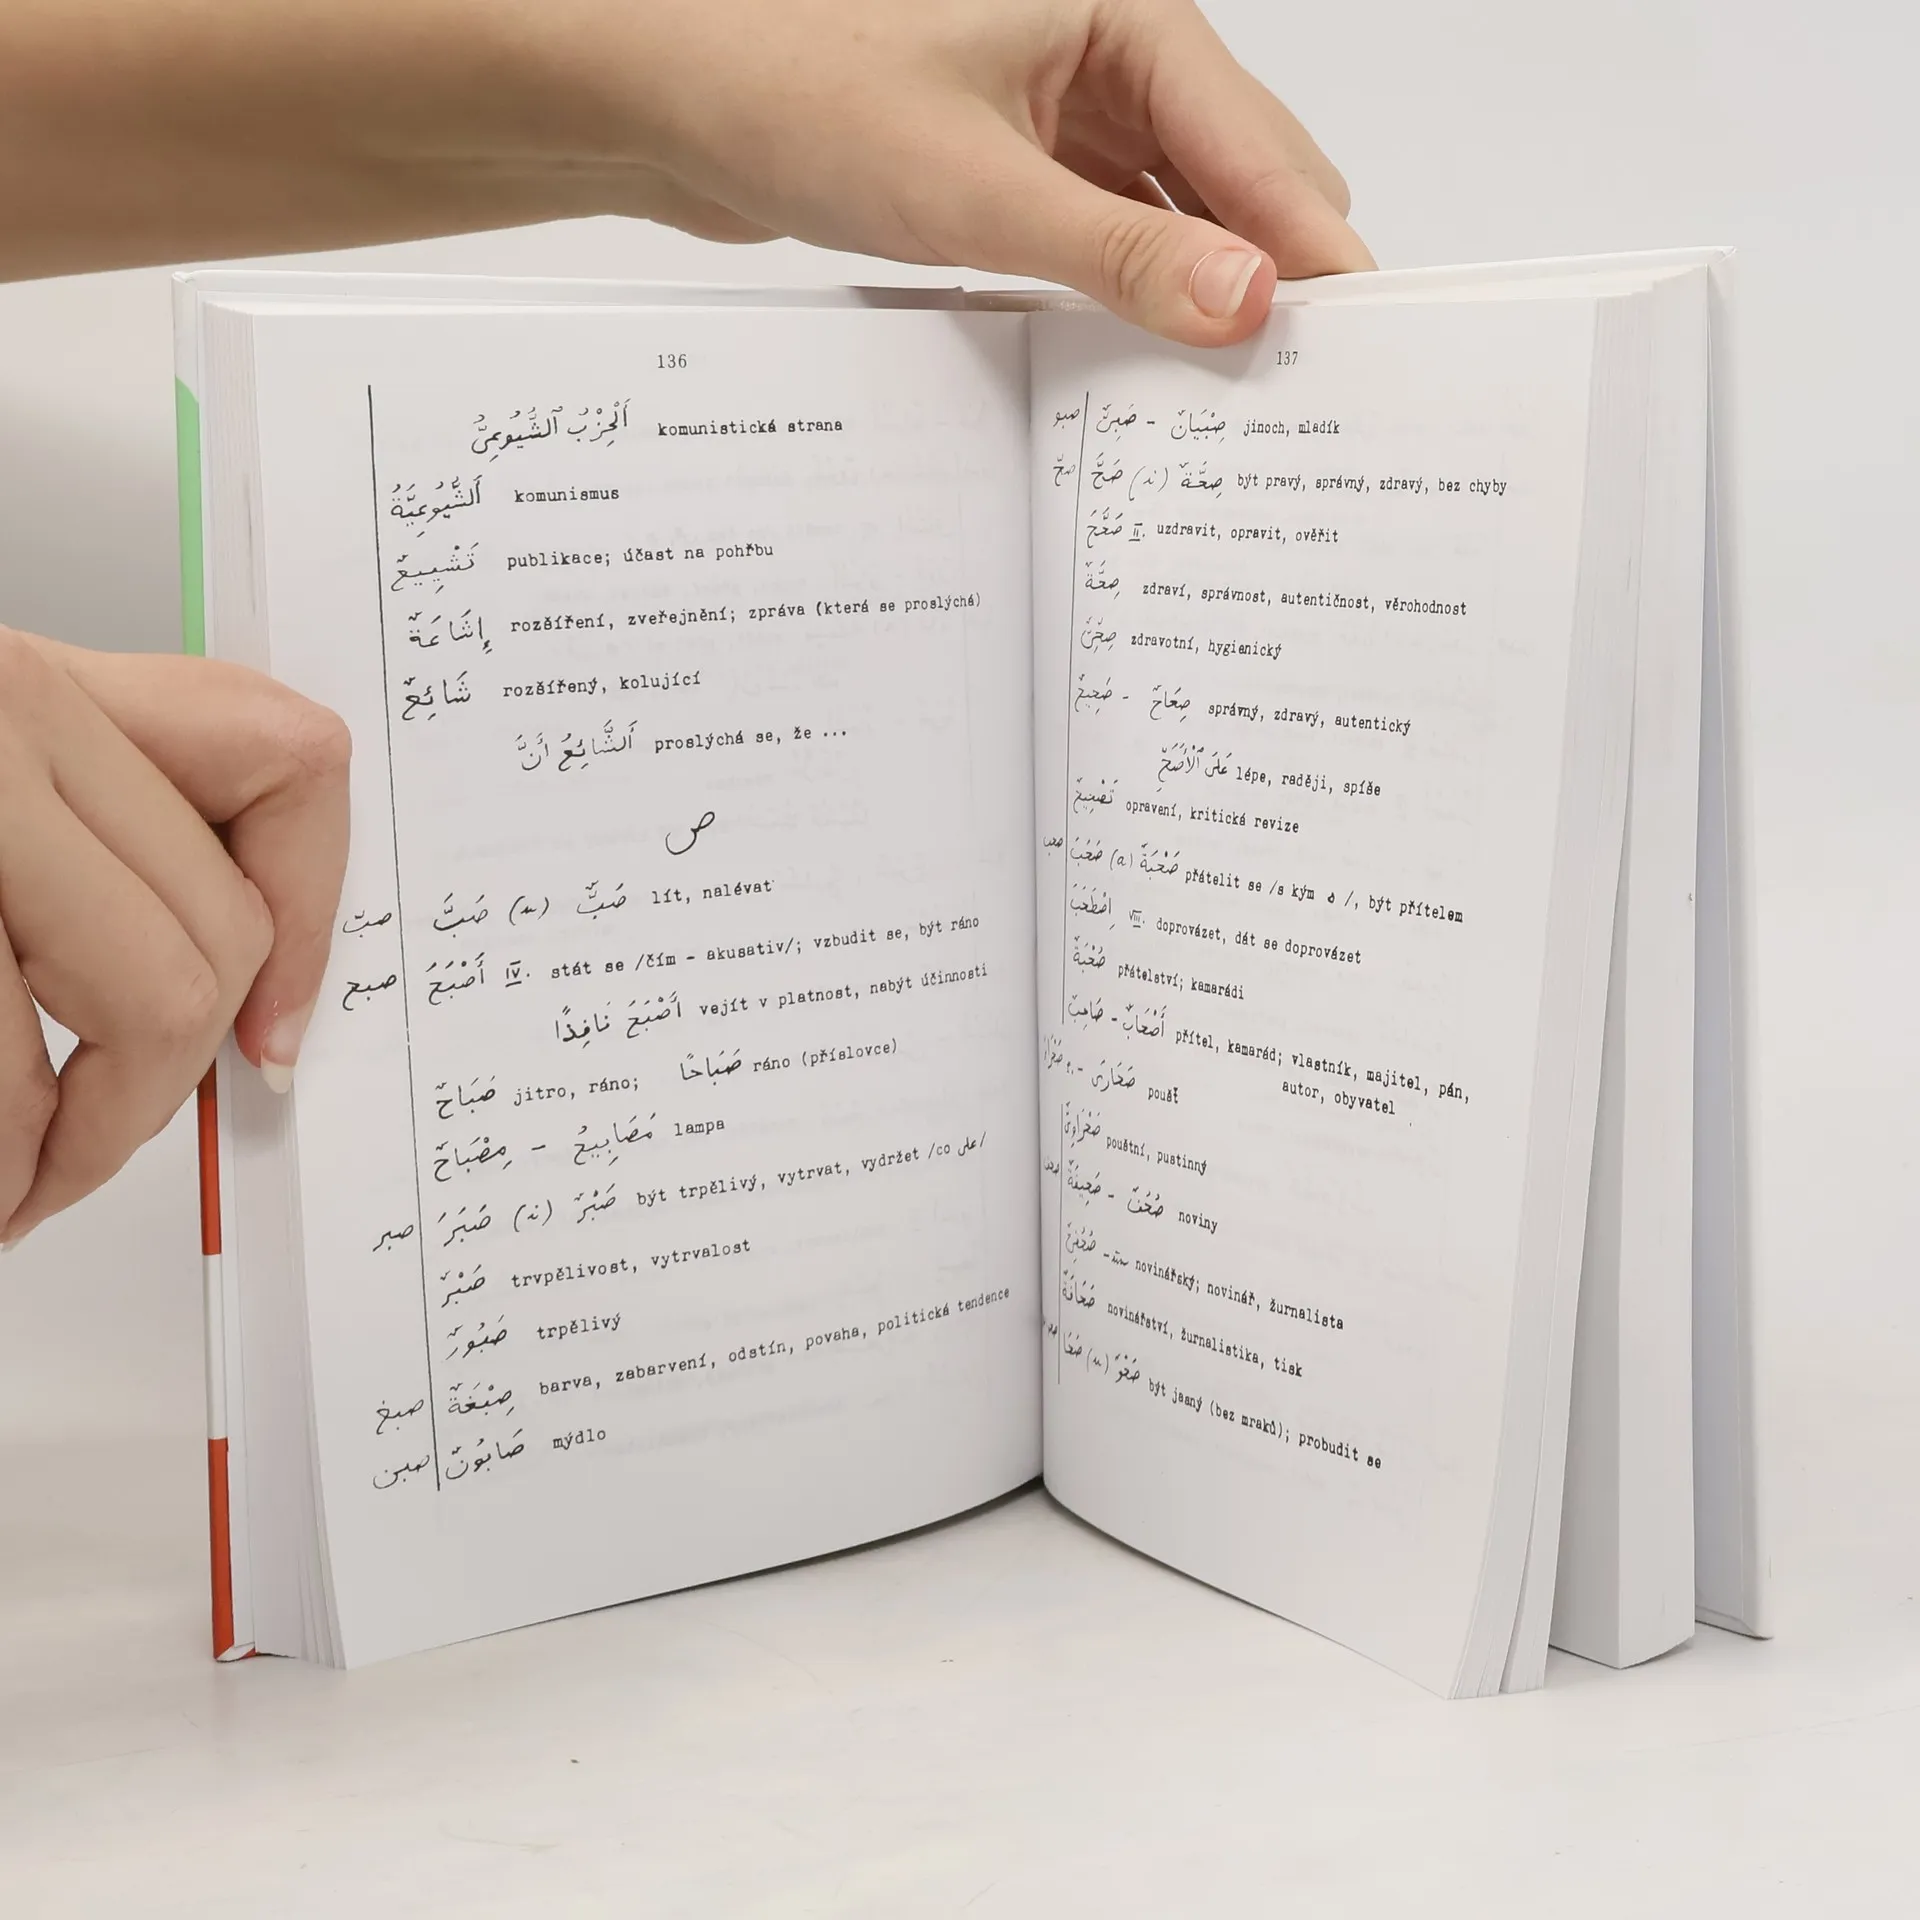 136
اَلْحِزْبُ ٱلشُّيُوعِىُّ komunistická strana
اَلشُّيُوعِيَّةُ komunismus
تَشْيِيعٌ publikace; účast na pohřbu
إِشَاعَةٌ rozšíření, zveřejnění; zpráva (která se proslýchá)
شَائِعٌ rozšířený, kolující
اَلشَّائِعُ أَنَّ proslýchá se, že ...
ص
صبّ صَبَّ (u) صَبٌّ lít, nalévat
صبح أَصْبَحَ IV. stát se /čím - akusativ/; vzbudit se, být ráno
أَصْبَحَ نَافِذًا vejít v platnost, nabýt účinnosti
صَبَاحٌ jitro, ráno; صَبَاحًا ráno (příslovce)
مِصْبَاحٌ - مَصَابِيحُ lampa
صبر صَبَرَ (i) صَبْرٌ být trpělivý, vytrvat, vydržet /co على/
صَبْرٌ trvpělivost, vytrvalost
صَبُورٌ trpělivý
صبغ صِبْغَةٌ barva, zabarvení, odstín, povaha, politická tendence
صبن صَابُونٌ mýdlo
137
صبو صَبِىٌّ - صِبْيَانٌ jinoch, mladík
صحّ صَحَّ (i) صِحَّةٌ být pravý, správný, zdravý, bez chyby
صَحَّحَ II. uzdravit, opravit, ověřit
صِحَّةٌ zdraví, správnost, autentičnost, věrohodnost
صِحِّىٌّ zdravotní, hygienický
صَحِيحٌ - صِحَاحٌ správný, zdravý, autentický
عَلَى ٱلْأَصَحِّ lépe, raději, spíše
تَصْحِيحٌ opravení, kritická revize
صحب صَحِبَ (a) صُحْبَةٌ přátelit se /s kým ه /, být přítelem
اِصْطَحَبَ VIII. doprovázet, dát se doprovázet
صُحْبَةٌ přátelství; kamarádi
صَاحِبٌ - أَصْحَابٌ přítel, kamarád; vlastník, majitel, pán,
autor, obyvatel
صَحَارَى poušť
صَحْرَاوِىٌّ pouštní, pustinný
صَحِيفَةٌ - صُحُفٌ noviny
صُحُفِىٌّ - novinářský; novinář, žurnalista
صَحَافَةٌ novinářství, žurnalistika, tisk
صَحَا (u) صَحْوٌ být jasný (bez mraků); probudit se